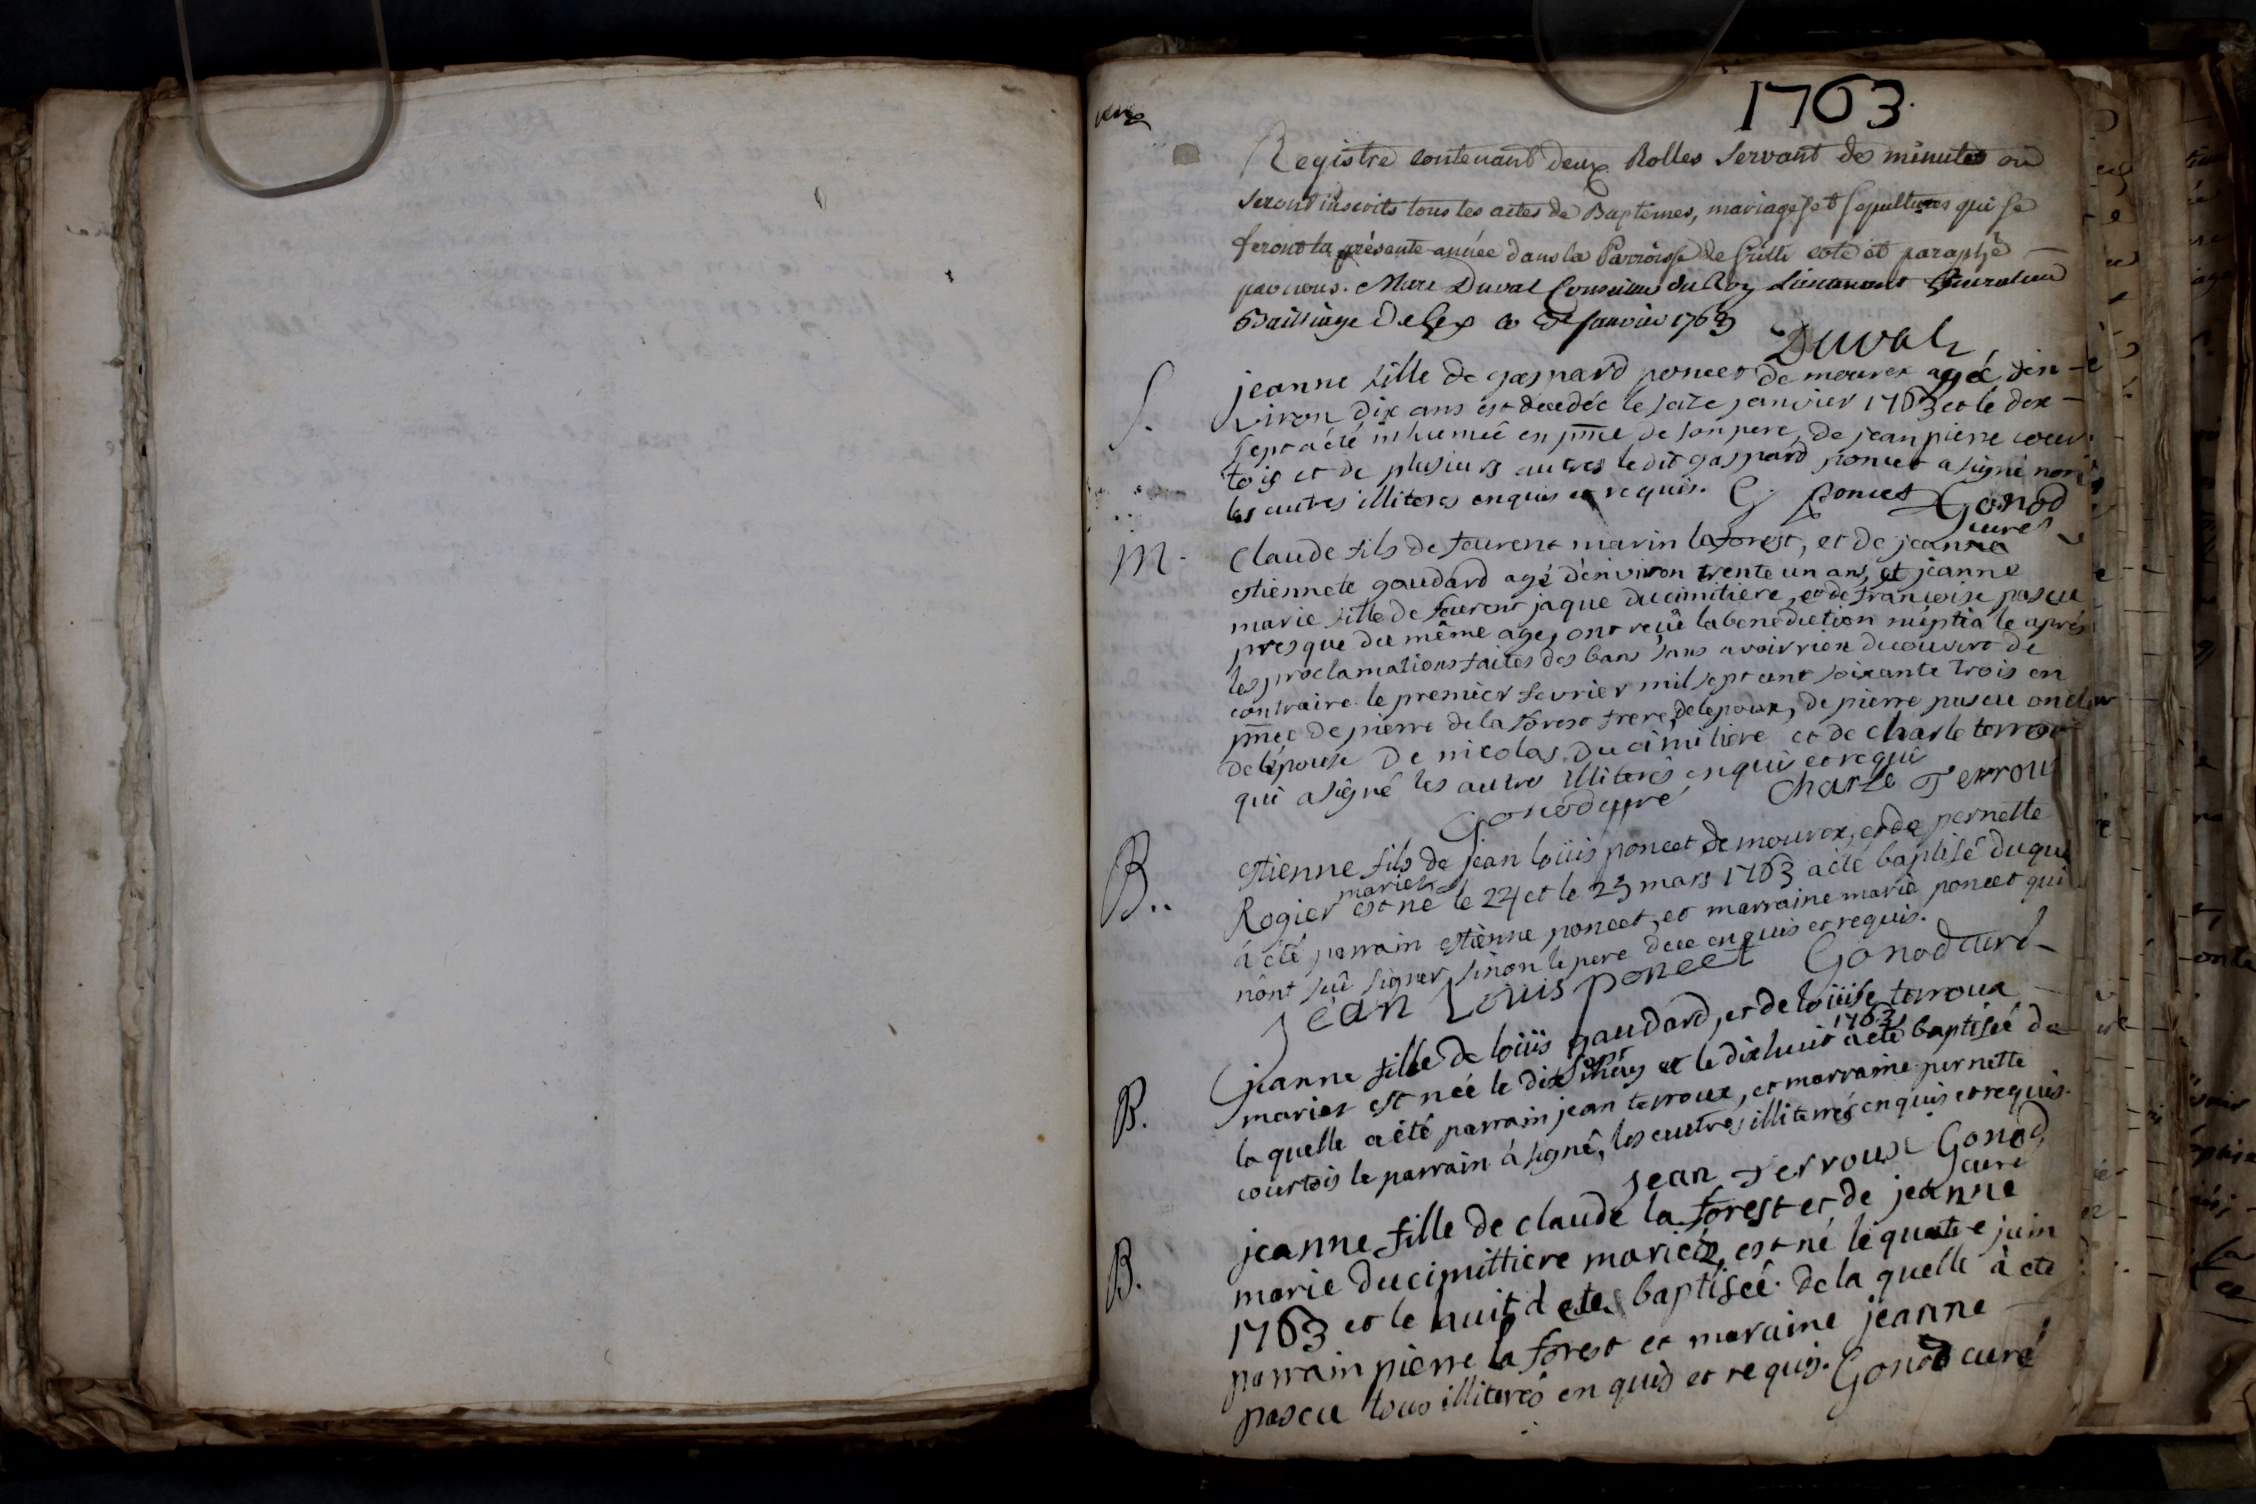 1763.
Registre contenant deux Rolles servant de minutes où
seront inscrits tous les actes de Baptêmes, mariages et sepultures qui se
feront la présente année dans la Parroisse de Grilli coté et paraphé
par nous. Marc Duval Conseiller du Roy Lieutenant General au
Bailliage De Gex ce janvier 1763
Duval
S. jeanne fille de gaspard poncet de mourex agée d'en-
viron dix ans est decedée le saize janvier 1763 et le dix-
sept a été inhumeé en pnce de son pere, de jean pierre cour-
tois et de plusiurs autres le dit gaspard poncet a signé non
les autres illiteres enquis et requis. G poncet Gonod
curé
M. Claude fils de feurent marin laforest, et de jeanne
estiennete gaudard agé d'environ trente un ans, et jeanne
marie fille de feurent jaque ducimitiere, et de francoise pascu
presque du même age, ont reçû la benediction nuptiale aprés
les proclamations faites des bans sans avoir rien decouvert de
contraire le premier fevrier mil sept cent soixante trois en
pnce de pierre de la forest frere, de lepoux, de pierre pascu oncle
de lépouse De nicolas Ducimitiere et de charle terroux
qui a signé les autres illiterés enqui et requi
Gonod curé Charle Terroux
B.. estienne fils de jean loüis poncet de mourex, et de pernette
Rogier mariez est né le 24 et le 25 mars 1763 a été baptisé duquel
à été parrain estienne poncet, et marraine marie poncet qui
nônt sçû signer, sinon le pere de ce enquis et requis.
jean Louis poncet Gonod curé
B. jeanne fille de loüis gaudard, et de loüise terroux
mariez est née le dix sept may et le dixhuit 1763 a été baptiseé de
la quelle a été parrain jean terroux, et marraine pernette
courtois le parrain à signé, les autres illiterrés enquis et requis.
jean Terroux Gonod
curé
B. jeanne fille de claude la forest et de jeanne
marie ducimittiere mariéz, est né le quatre juin
1763 et le huit a eté baptiseé. de la quelle à eté
parrain pierre la forest et maraine jeanne
pascu tous illiterés en quis et requis. Gonod curé